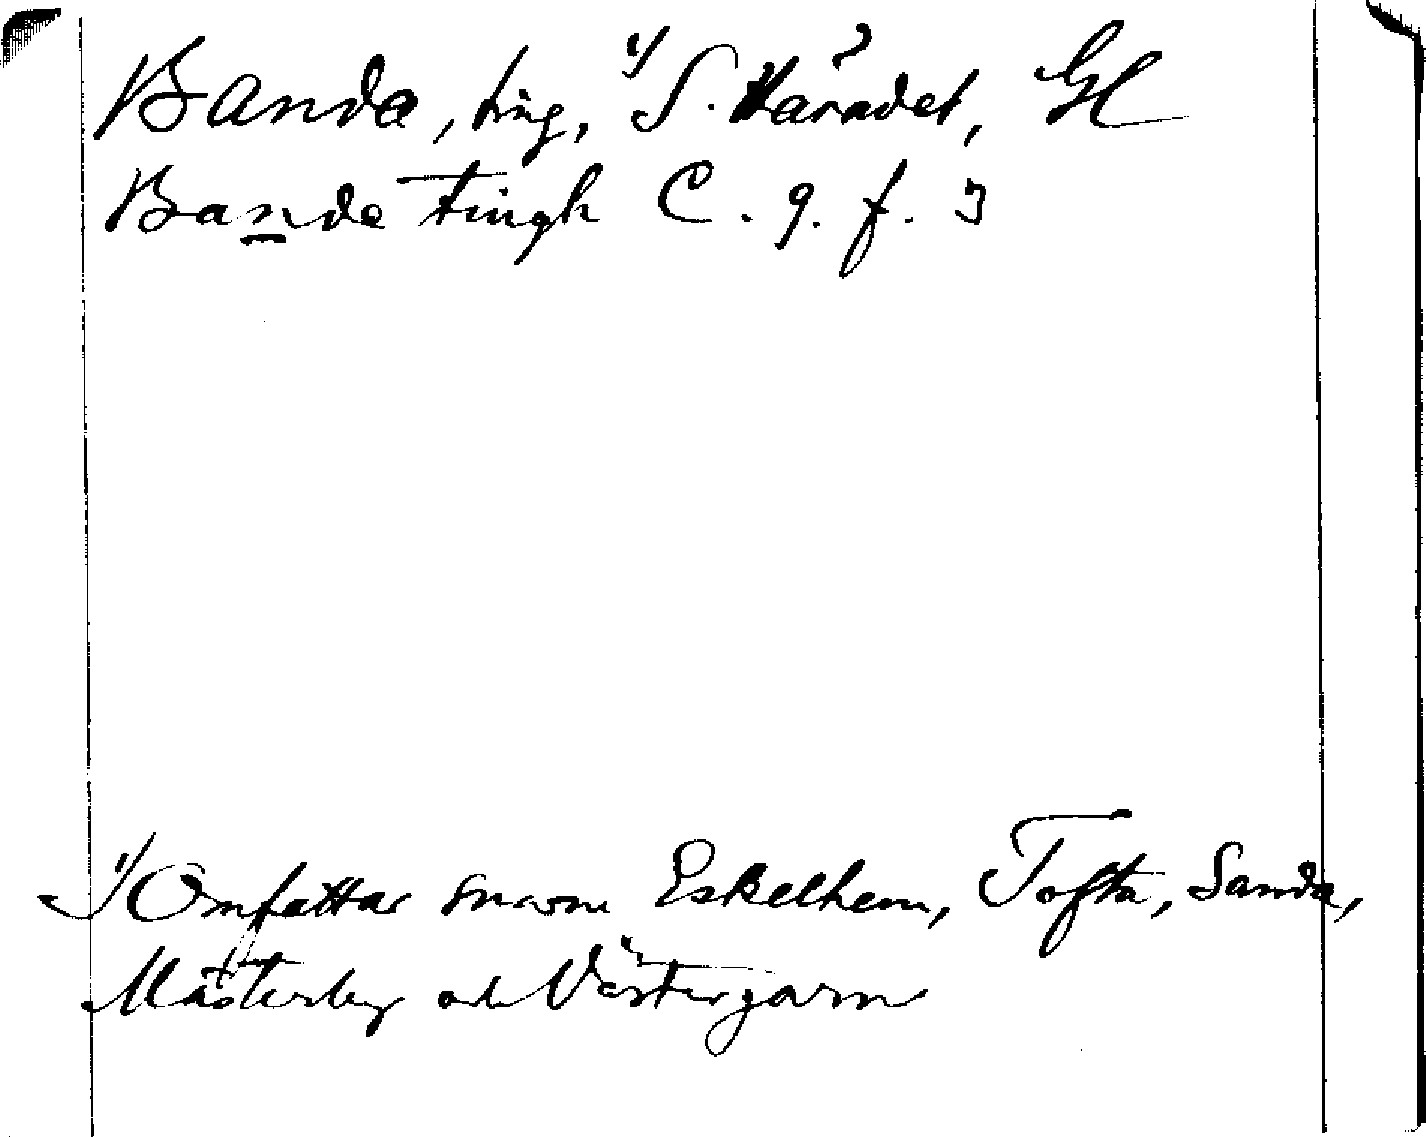 Banda, ting, 1/ S. Häradet, Gl
Banda tingh C. 9. f. 3
1/ Omfattar sn:arne Eskelhem, Tofta, Sanda,
Mästerby och Västergarn